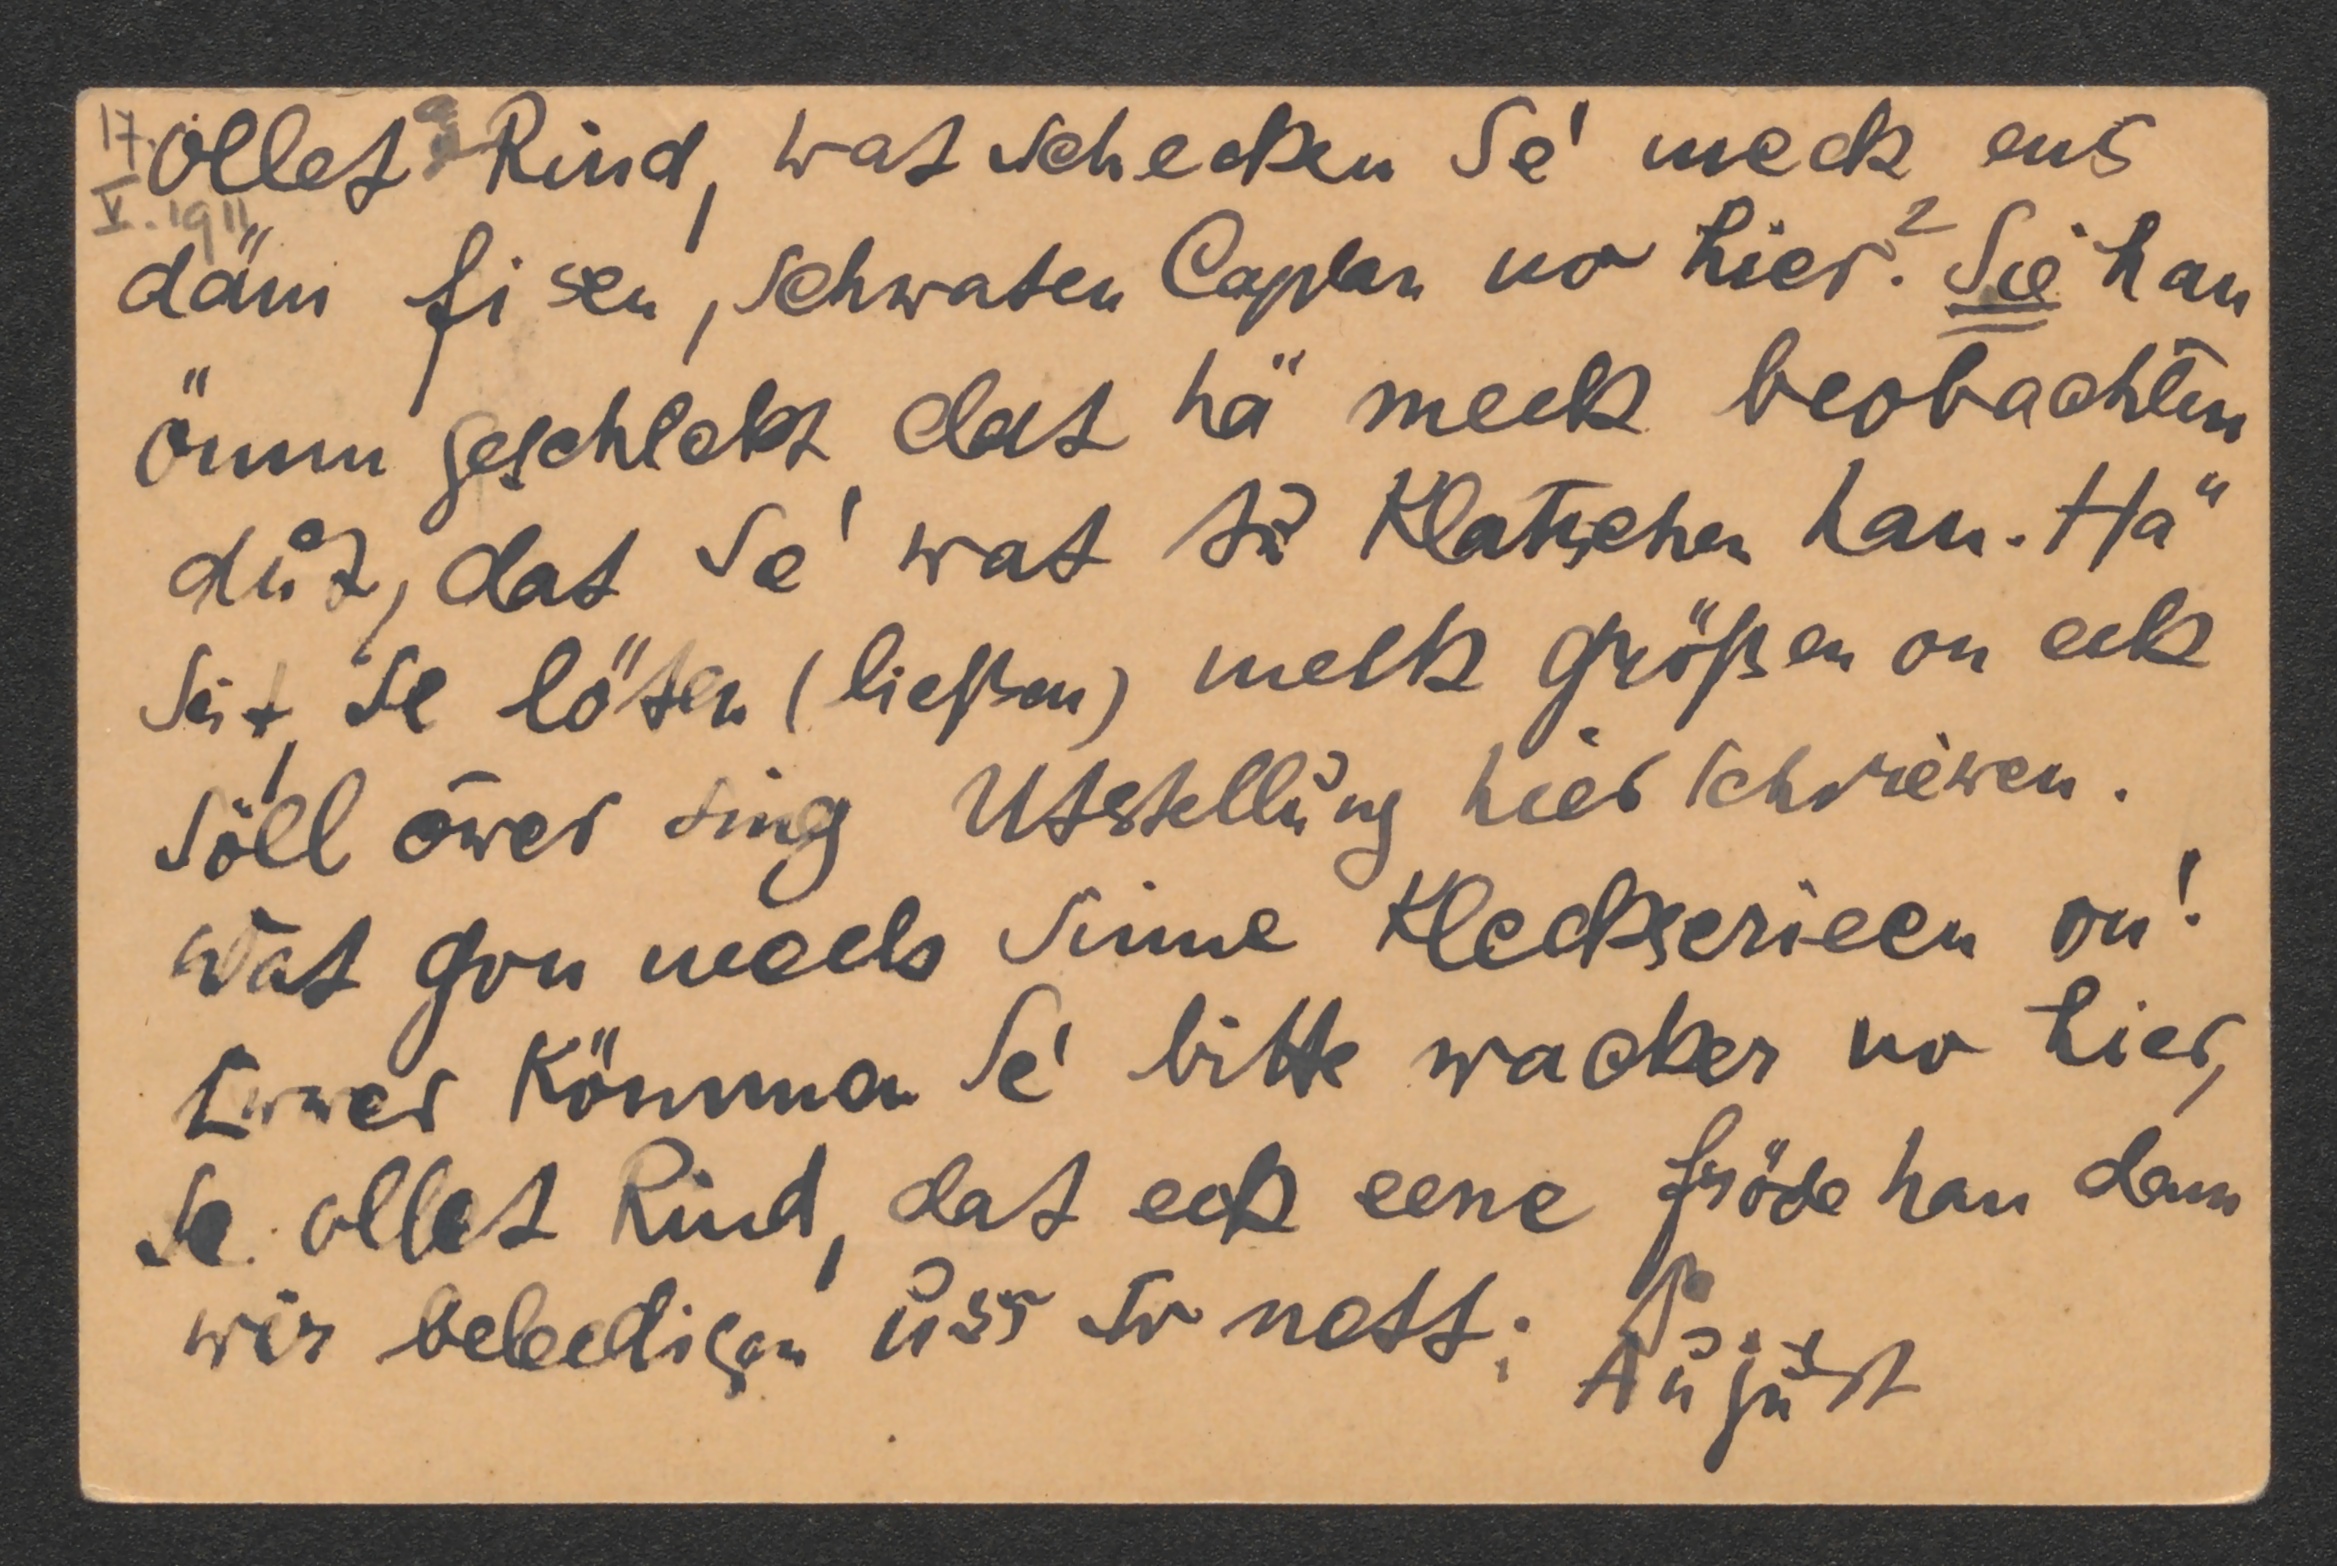 17.
V. 1911
Ollet Rind, wat schecken Se' meck ens
däm fisen, schwaten Caplan no hier? Sie han
önnn geschlekt, dat hä meck beobachten
dut, dat Se' wat tu Klatschen han. Hä
seit, se löten (ließen) meck größen on eck
söll öwer sing Utstellung hier schriewen.
Wat gon meck sinne Kleckserieen on!
Ewwer Kömmen Se' bitte wacker no hier,
Se ollet Rind, dat eck eene fröde han denn
wir beleedigen uss jo nett;
August